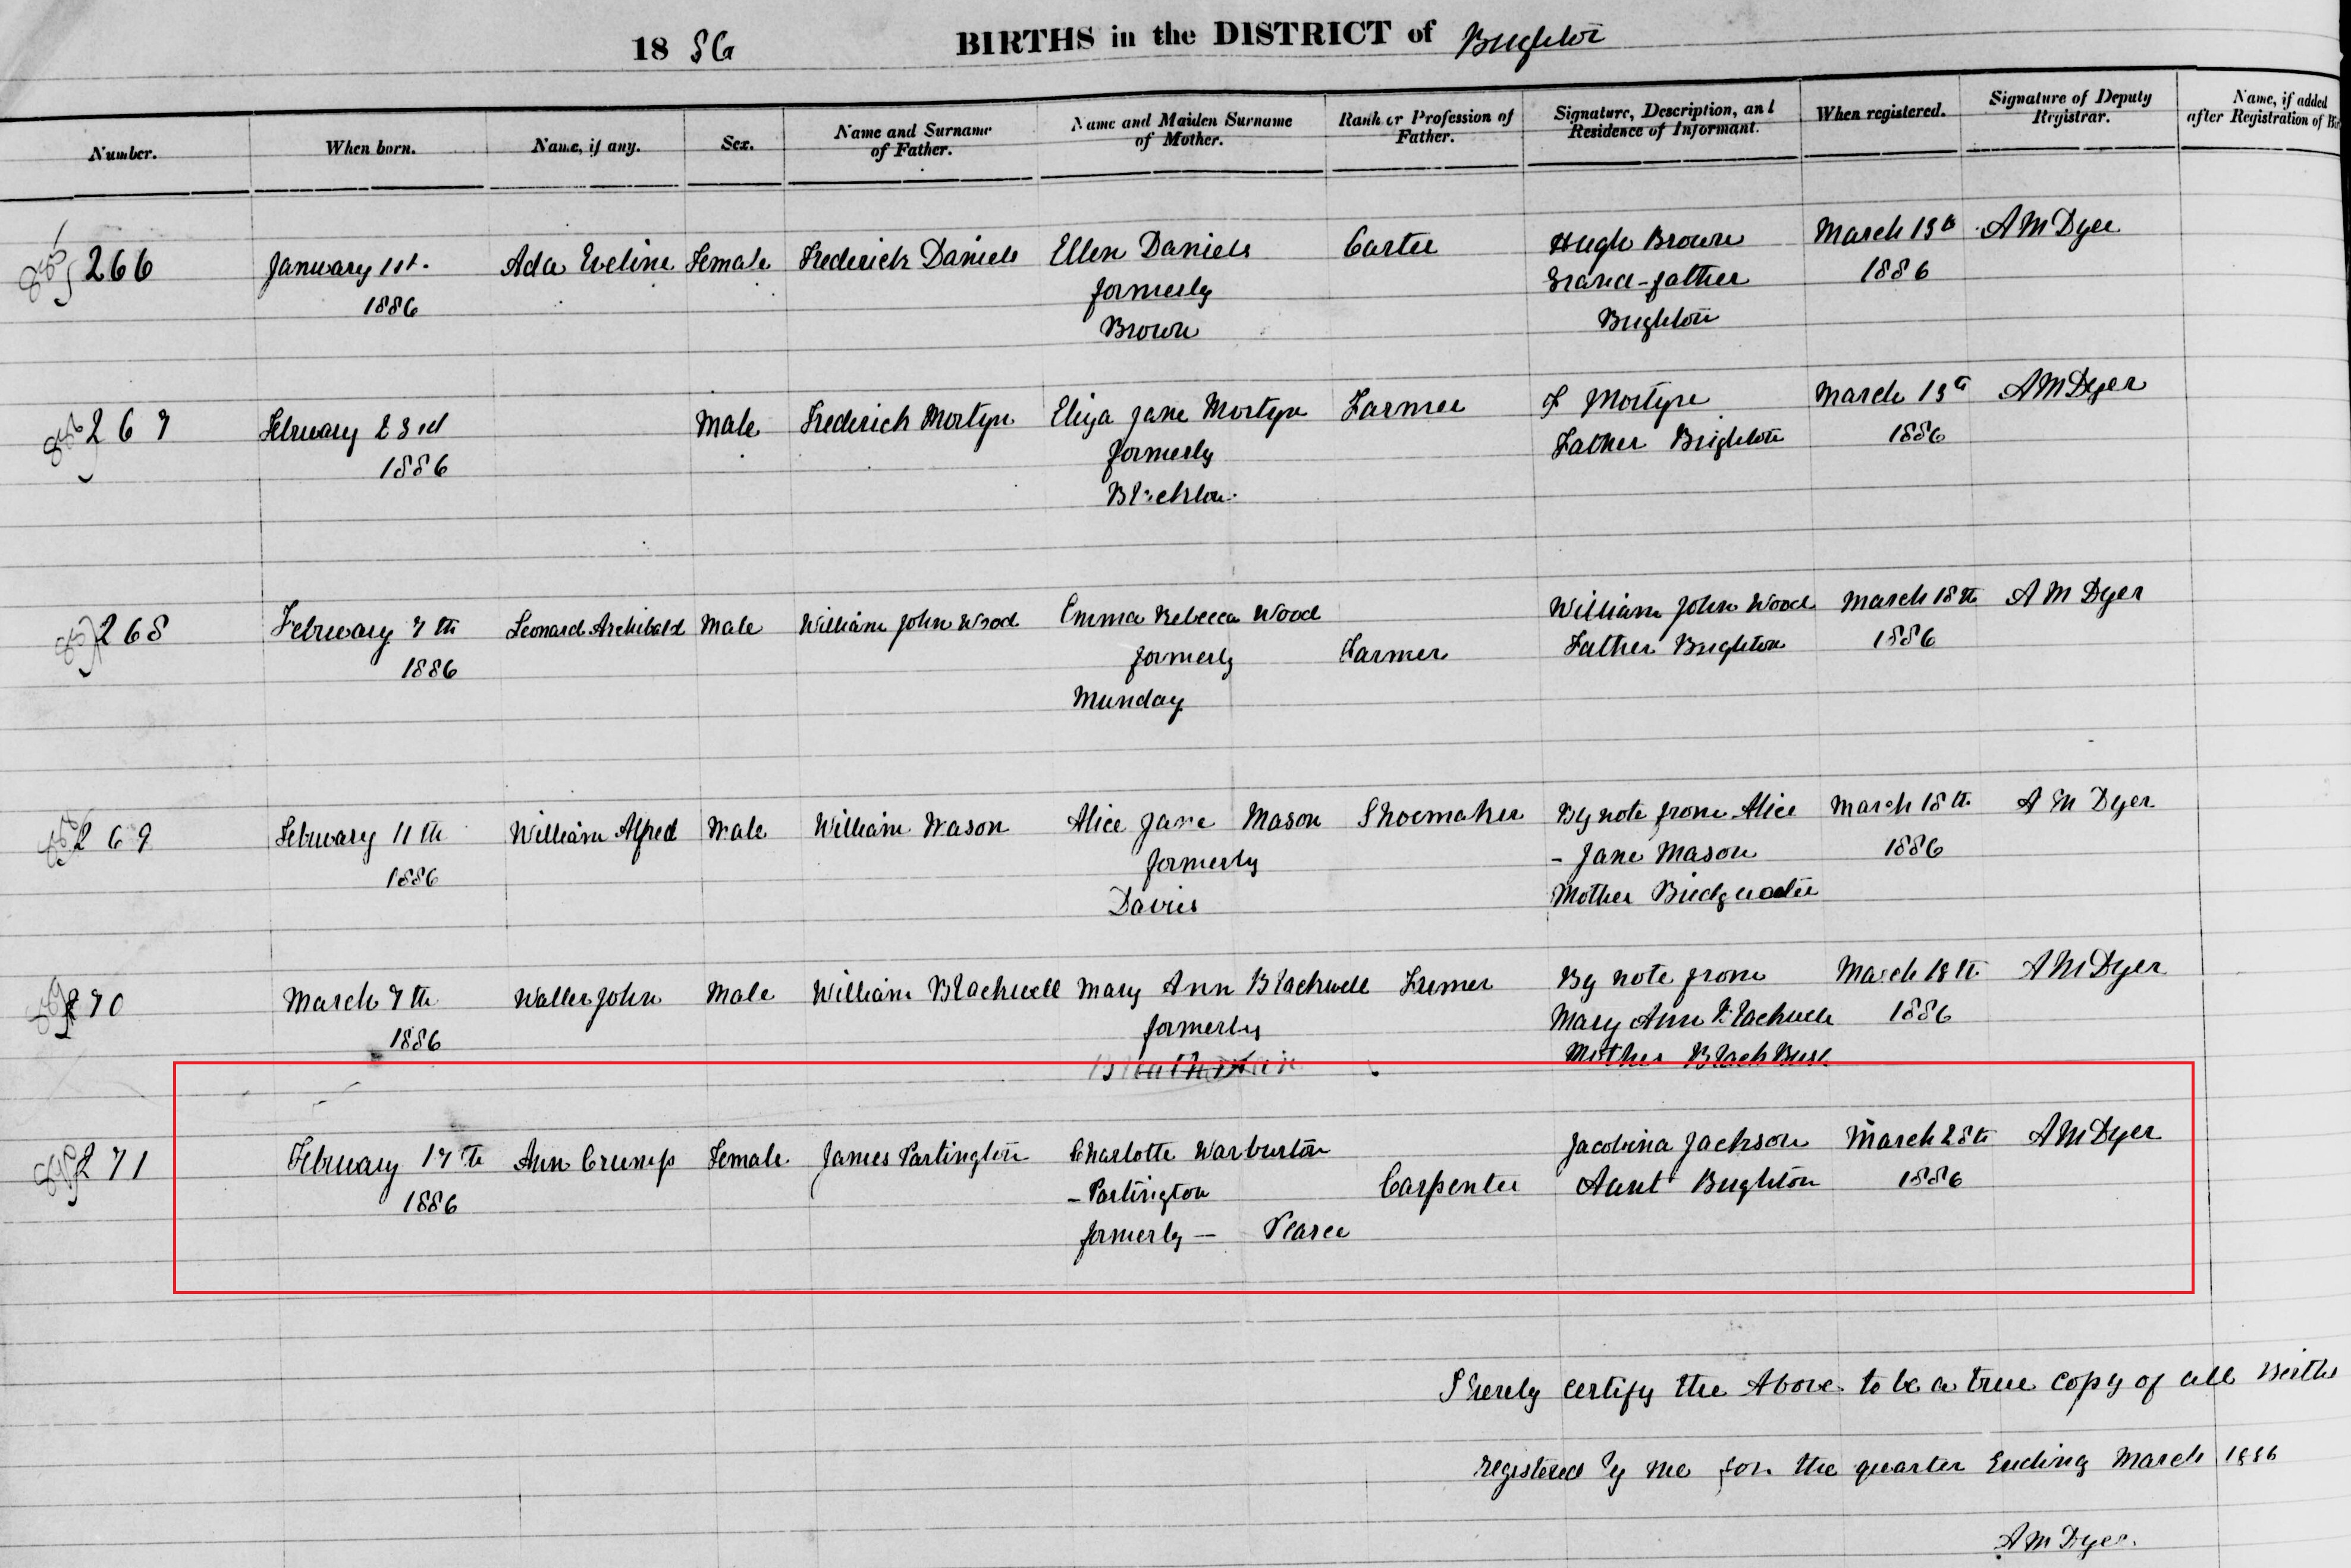 18 86 BIRTHS in the DISTRICT of Brighton
Number. When born. Name, if any. Sex. Name and Surname of Father. Name and Maiden Surname of Mother. Rank or Profession of Father. Signature, Description, and Residence of Informant. When registered. Signature of Deputy Registrar. Name, if added after Registration of
266 January 1st. Ada Eveline Female Frederick Daniels Ellen Daniels Carter Hugh Brown March 13th A M Dyer
1886 formerly Grand-father 1886
Brown Brighton
267 February 23rd Male Frederick Mortyn Eliza Jane Mortyn Farmer F Mortyn March 13th A M Dyer
1886 formerly Father Brighton 1886
268 February 7th Leonard Archibald Male William John Wood Emma Rebecca Wood William John Wood March 18th A M Dyer
1886 formerly Farmer Father Brighton 1886
Munday
269 February 11th William Alfred Male William Mason Alice Jane Mason Shoemaker By note from Alice March 18th A M Dyer
1886 formerly - Jane Mason 1886
Davies Mother Bridgwater
270 March 7th Walter John Male William Blackwell Mary Ann Blackwell Farmer By note from March 18th A M Dyer
1886 formerly Mary Ann Blackwell 1886
Mother Black Bush
271 February 17th Ann Crump Female James Partington Charlotte Warburton Jacobina Jackson March 28th A M Dyer
1886 - Partington Carpenter Aunt Brighton 1886
formerly — Pearce
I hereby certify the Above to be a true copy of all Births
registered by me for the quarter Ending March 1886
A M Dyer.